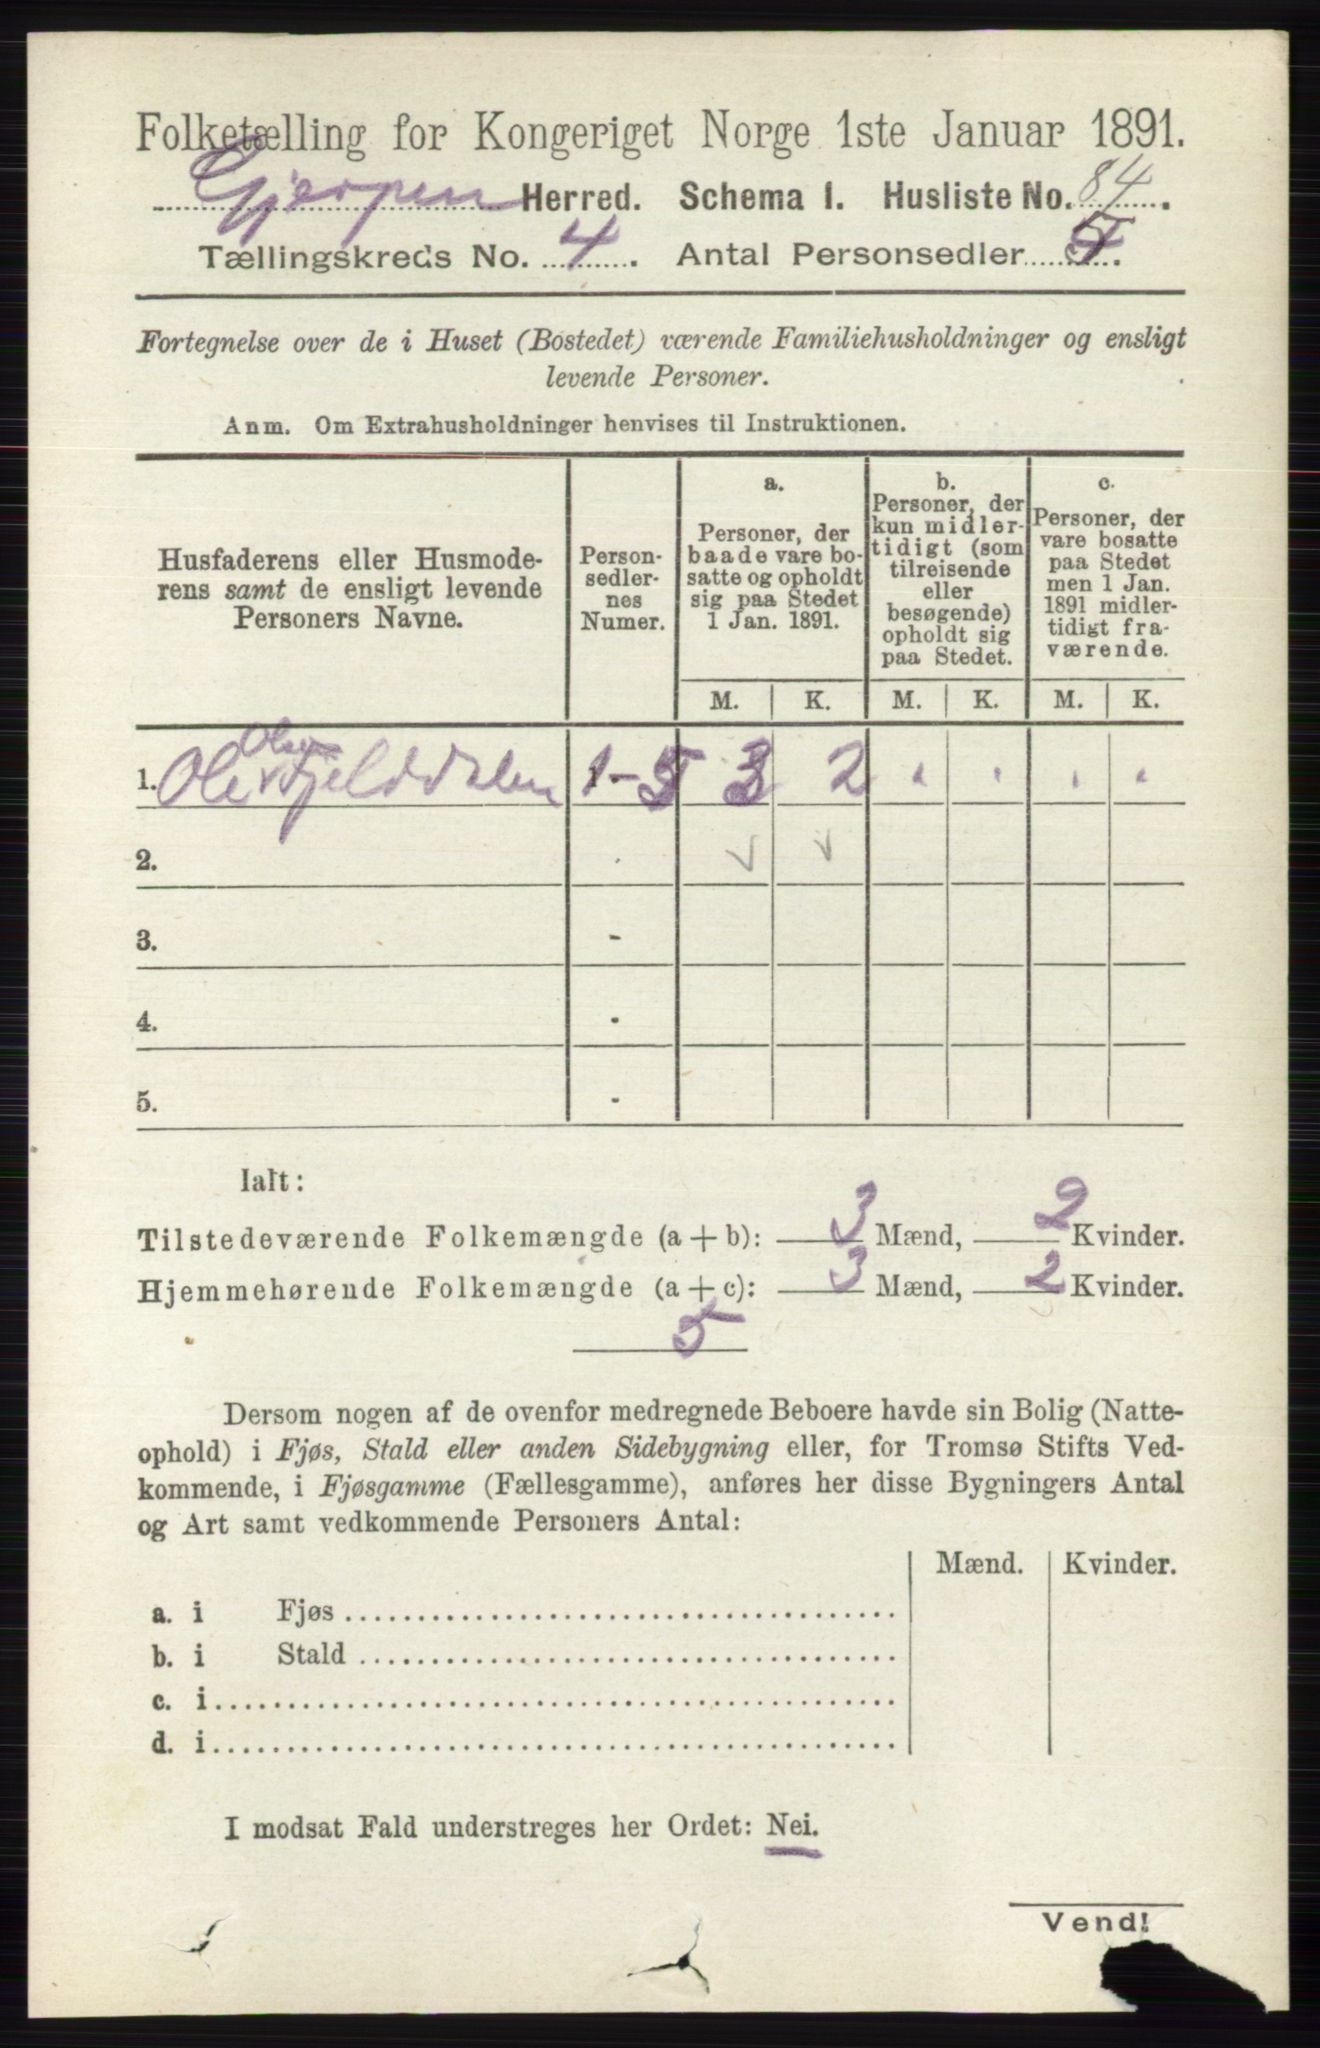 Folketælling for Kongeriget Norge 1ste Januar 1891.
Gjerpen Herred. Schema I. Husliste No. 84.
Tællingskreds No. 4. Antal Personsedler 5.
Fortegnelse over de i Huset (Bostedet) værende Familiehusholdninger og ensligt
levende Personer.
Anm. Om Extrahusholdninger henvises til Instruktionen.
Husfaderens eller Husmode-
rens samt de ensligt levende
Personers Navne.
Person-
sedler-
nes
Numer.
a.
Personer, der
baade vare bo-
satte og opholdt
sig paa Stedet
1 Jan. 1891.
b.
Personer, der
kun midler-
tidigt (som
tilreisende
eller
besøgende)
opholdt sig
paa Stedet.
c.
Personer, der
vare bosatte
paa Stedet
men 1 Jan.
1891 midler-
tidigt fra-
værende.
M. K. M. K. M. K.
Olsen
1. Ole Fjelddalen 1-5 3 2
2.
3. -
4. -
5. -
Ialt:
Tilstedeværende Folkemængde (a + b): 3 Mænd, 2 Kvinder.
Hjemmehørende Folkemængde (a + c): 3 Mænd, 2 Kvinder.
5
Dersom nogen af de ovenfor medregnede Beboere havde sin Bolig (Natte-
ophold) i Fjøs, Stald eller anden Sidebygning eller, for Tromsø Stifts Ved-
kommende, i Fjøsgamme (Fællesgamme), anføres her disse Bygningers Antal
og Art samt vedkommende Personers Antal:
Mænd. Kvinder.
a. i Fjøs
b. i Stald
c. i
d. i
I modsat Fald understreges her Ordet: Nei.
Vend!